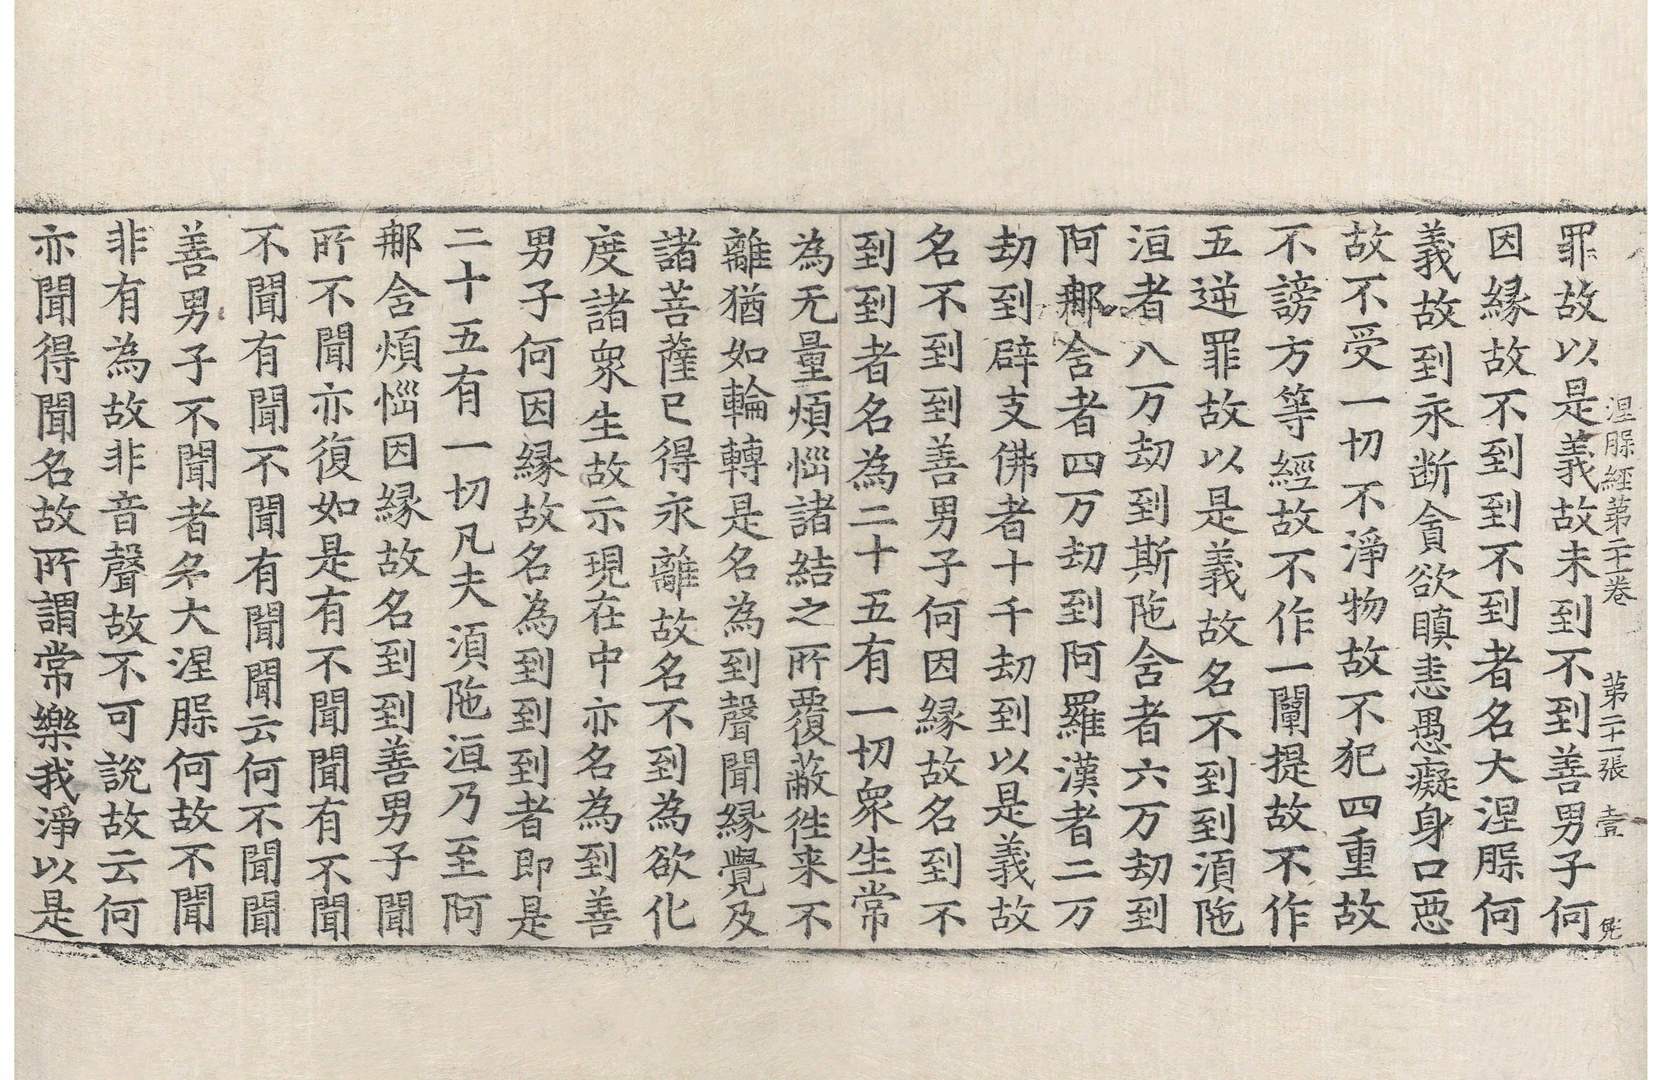 涅脲經第二十一卷　第二十一張　壹　兠
罪故以是義故未到不到善男子何
因縁故不到到不到者名大涅脲何
義故到永断貪欲瞋恚愚癡身口惡
故不受一切不淨物故不犯四重故
不謗方等經故不作一闡提故不作
五逆罪故以是義故名不到到湏陁
洹者八万劫到斯陁含者六万劫到
阿那含者四万劫到阿羅漢者二万
劫到辟支佛者十千劫到以是義故
名不到到善男子何因縁故名到不
到到者名為二十五有一切衆生常
為无量煩惱諸結之所覆蔽徃来不
離猶如輪轉是名為到聲聞縁覺及
諸菩薩已得永離故名不到為欲化
度諸衆生故示現在中亦名為到善
男子何因縁故名為到到到者即是
二十五有一切凡夫湏陁洹乃至阿
那含煩惱因縁故名到到善男子聞
所不聞亦復如是有不聞聞有不聞
不聞有聞不聞有聞聞云何不聞聞
善男子不聞者名大涅脲何故不聞
非有為故非音聲故不可說故云何
亦聞得聞名故所謂常樂我淨以是